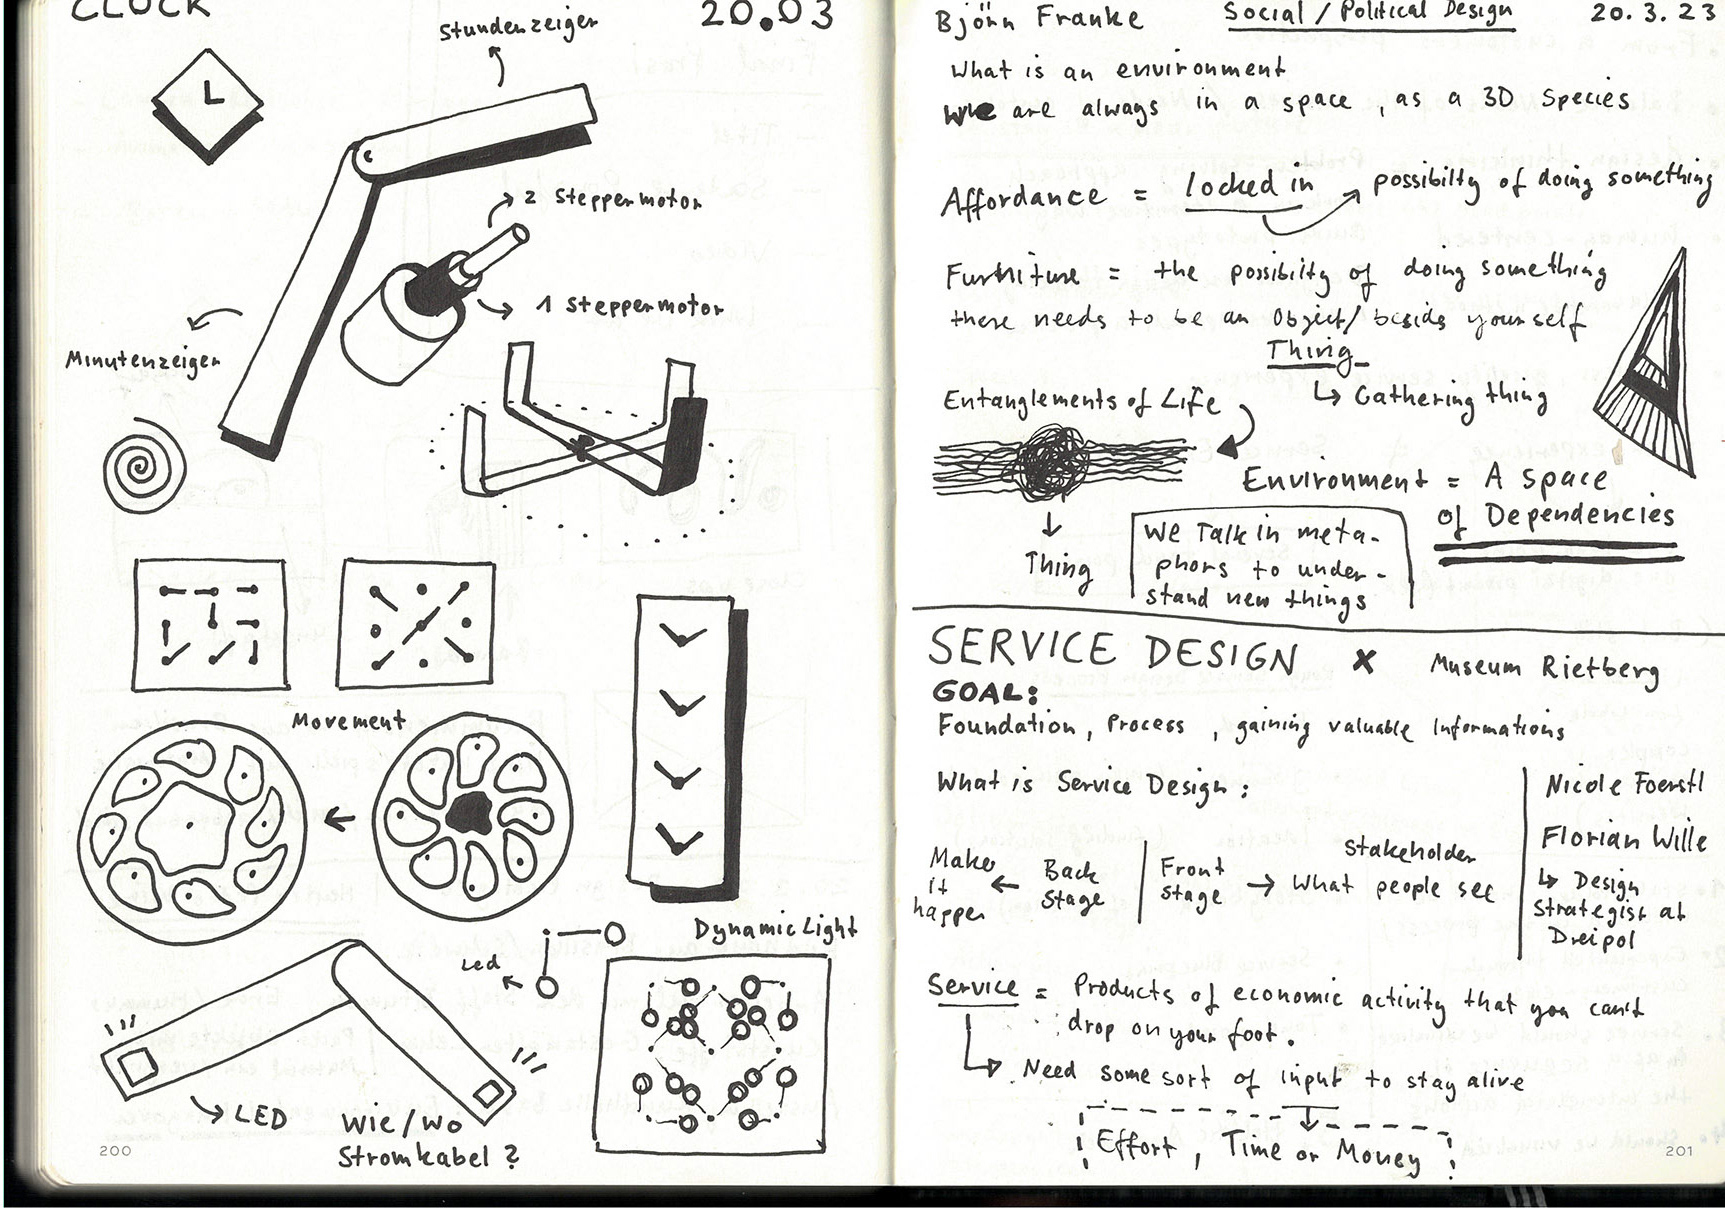 CLOCK
20.03
Stundenzeiger
2 Steppermotor
1 Steppermotor
Minutenzeiger
Movement
Dynamic Light
Led
LED
Wie/Wo
Stromkabel?
200
Björn Franke Social / Political Design 20.3.23
What is an environment
We are always in a space, as a 3D Species
Affordance = locked in possibilty of doing something
Furniture = the possibilty of doing something
there needs to be an Object/besids yourself
Thing
Gathering thing
Entanglements of Life
Environment = A space
of Dependencies
Thing
We Talk in meta-
phors to under-
stand new things
SERVICE DESIGN x Museum Rietberg
GOAL:
Foundation, Process, gaining valuable Informations
What is Service Design:
Make
it
happen
Back
Stage
Front
Stage
Stakeholder
What people see
Nicole Foerstl
Florian Wille
Design
Strategist at
Dreipol
Service = Products of economic activity that you can't
drop on your foot.
Need some sort of input to stay alive
Effort, Time or Money
201